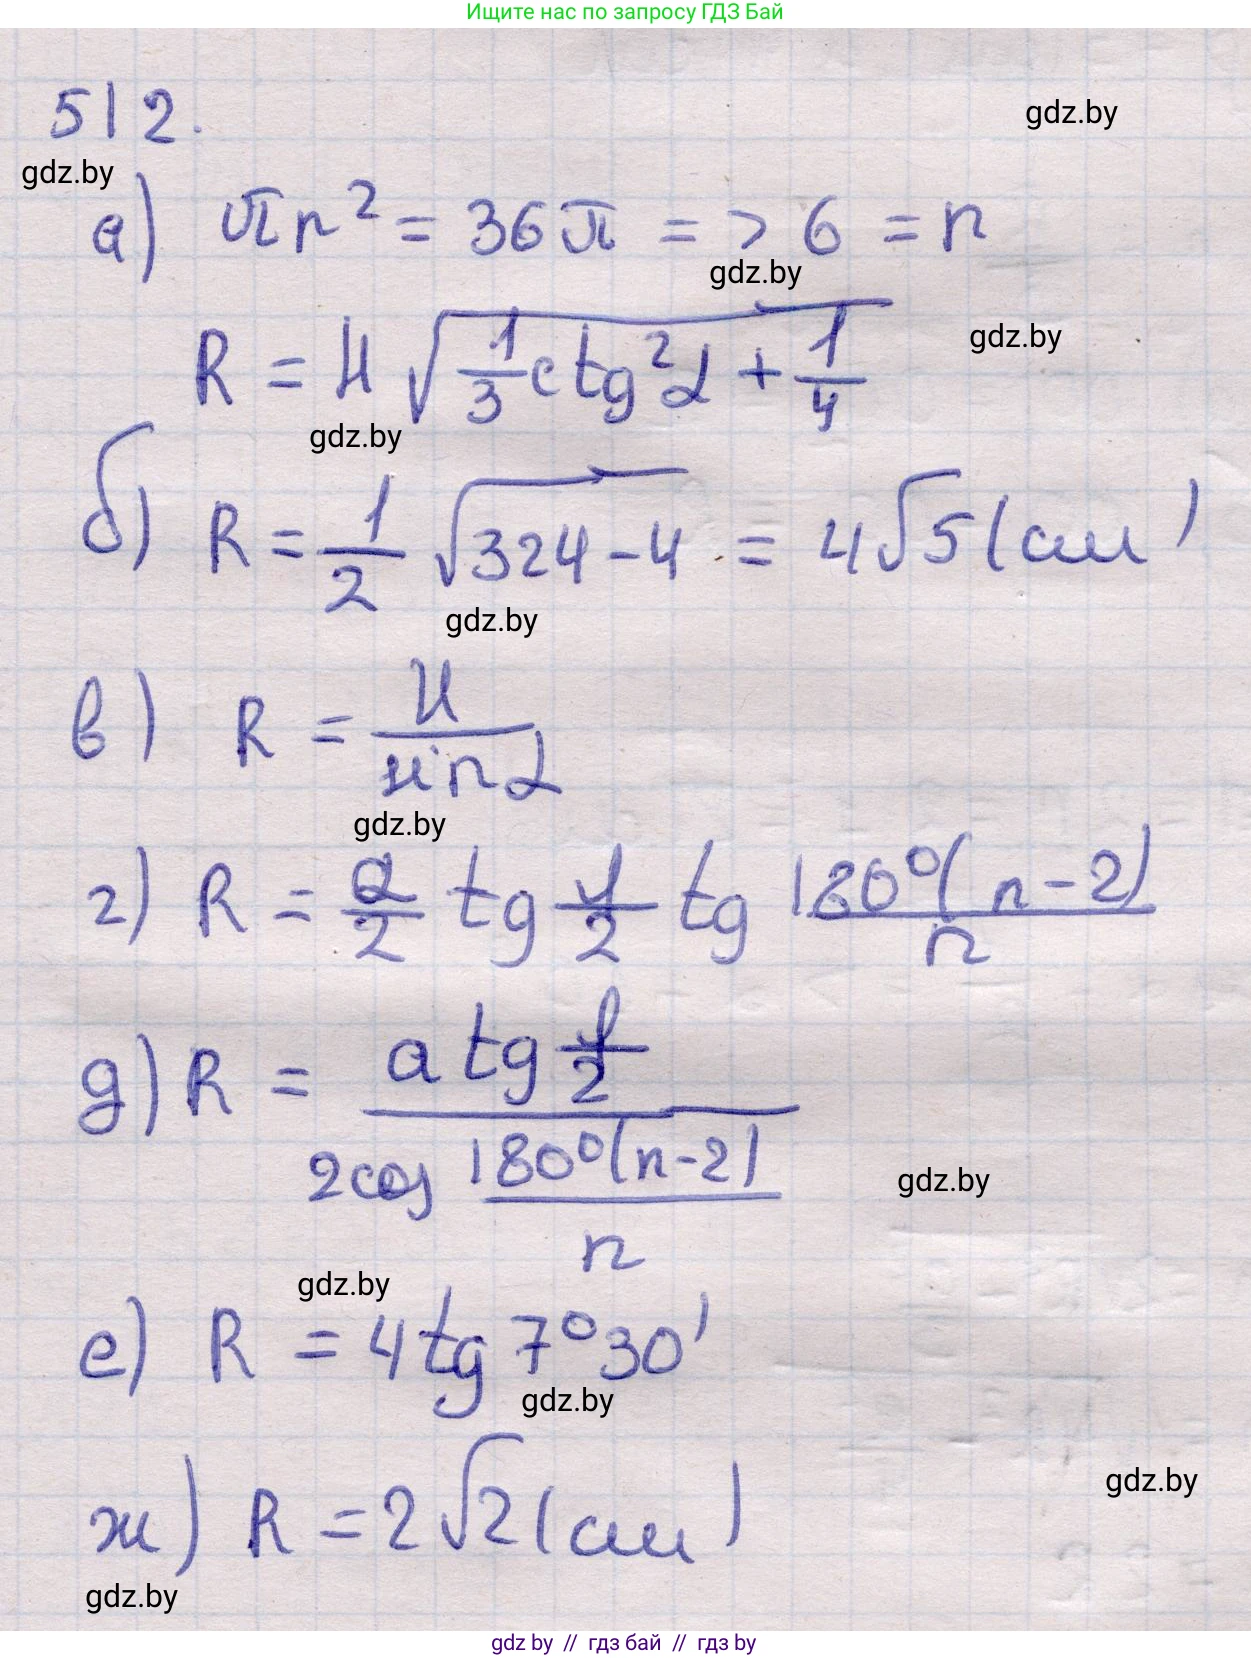 Ищите нас по запросу ГДЗ Бай
512.
gdz.by
gdz.by
а) πr² = 36π => 6 = r
gdz.by
R = H √(1/3 ctg²α + 1/4)
gdz.by
gdz.by
б) R = 1/2 √(324-4) = 4√5 (см)
gdz.by
в) R = H/sinα
gdz.by
г) R = a/2 tg φ/2 tg 180°(n-2)/n
д) R = a tg φ/2 / 2cos 180°(n-2)/n
gdz.by
gdz.by
е) R = 4tg 7°30'
gdz.by
ж) R = 2√2 (см)
gdz.by
gdz.by
gdz.by // гдз бай // гдз by